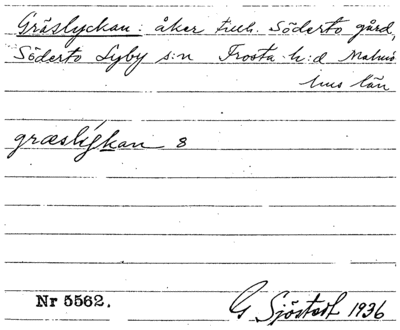 Gräslyckan: åker tillh. Söderto gård,
Söderto Lyby s:n Frosta h:d Malmö
hus län
græslykan 8
Nr 5562.
G Sjöstedt 1936